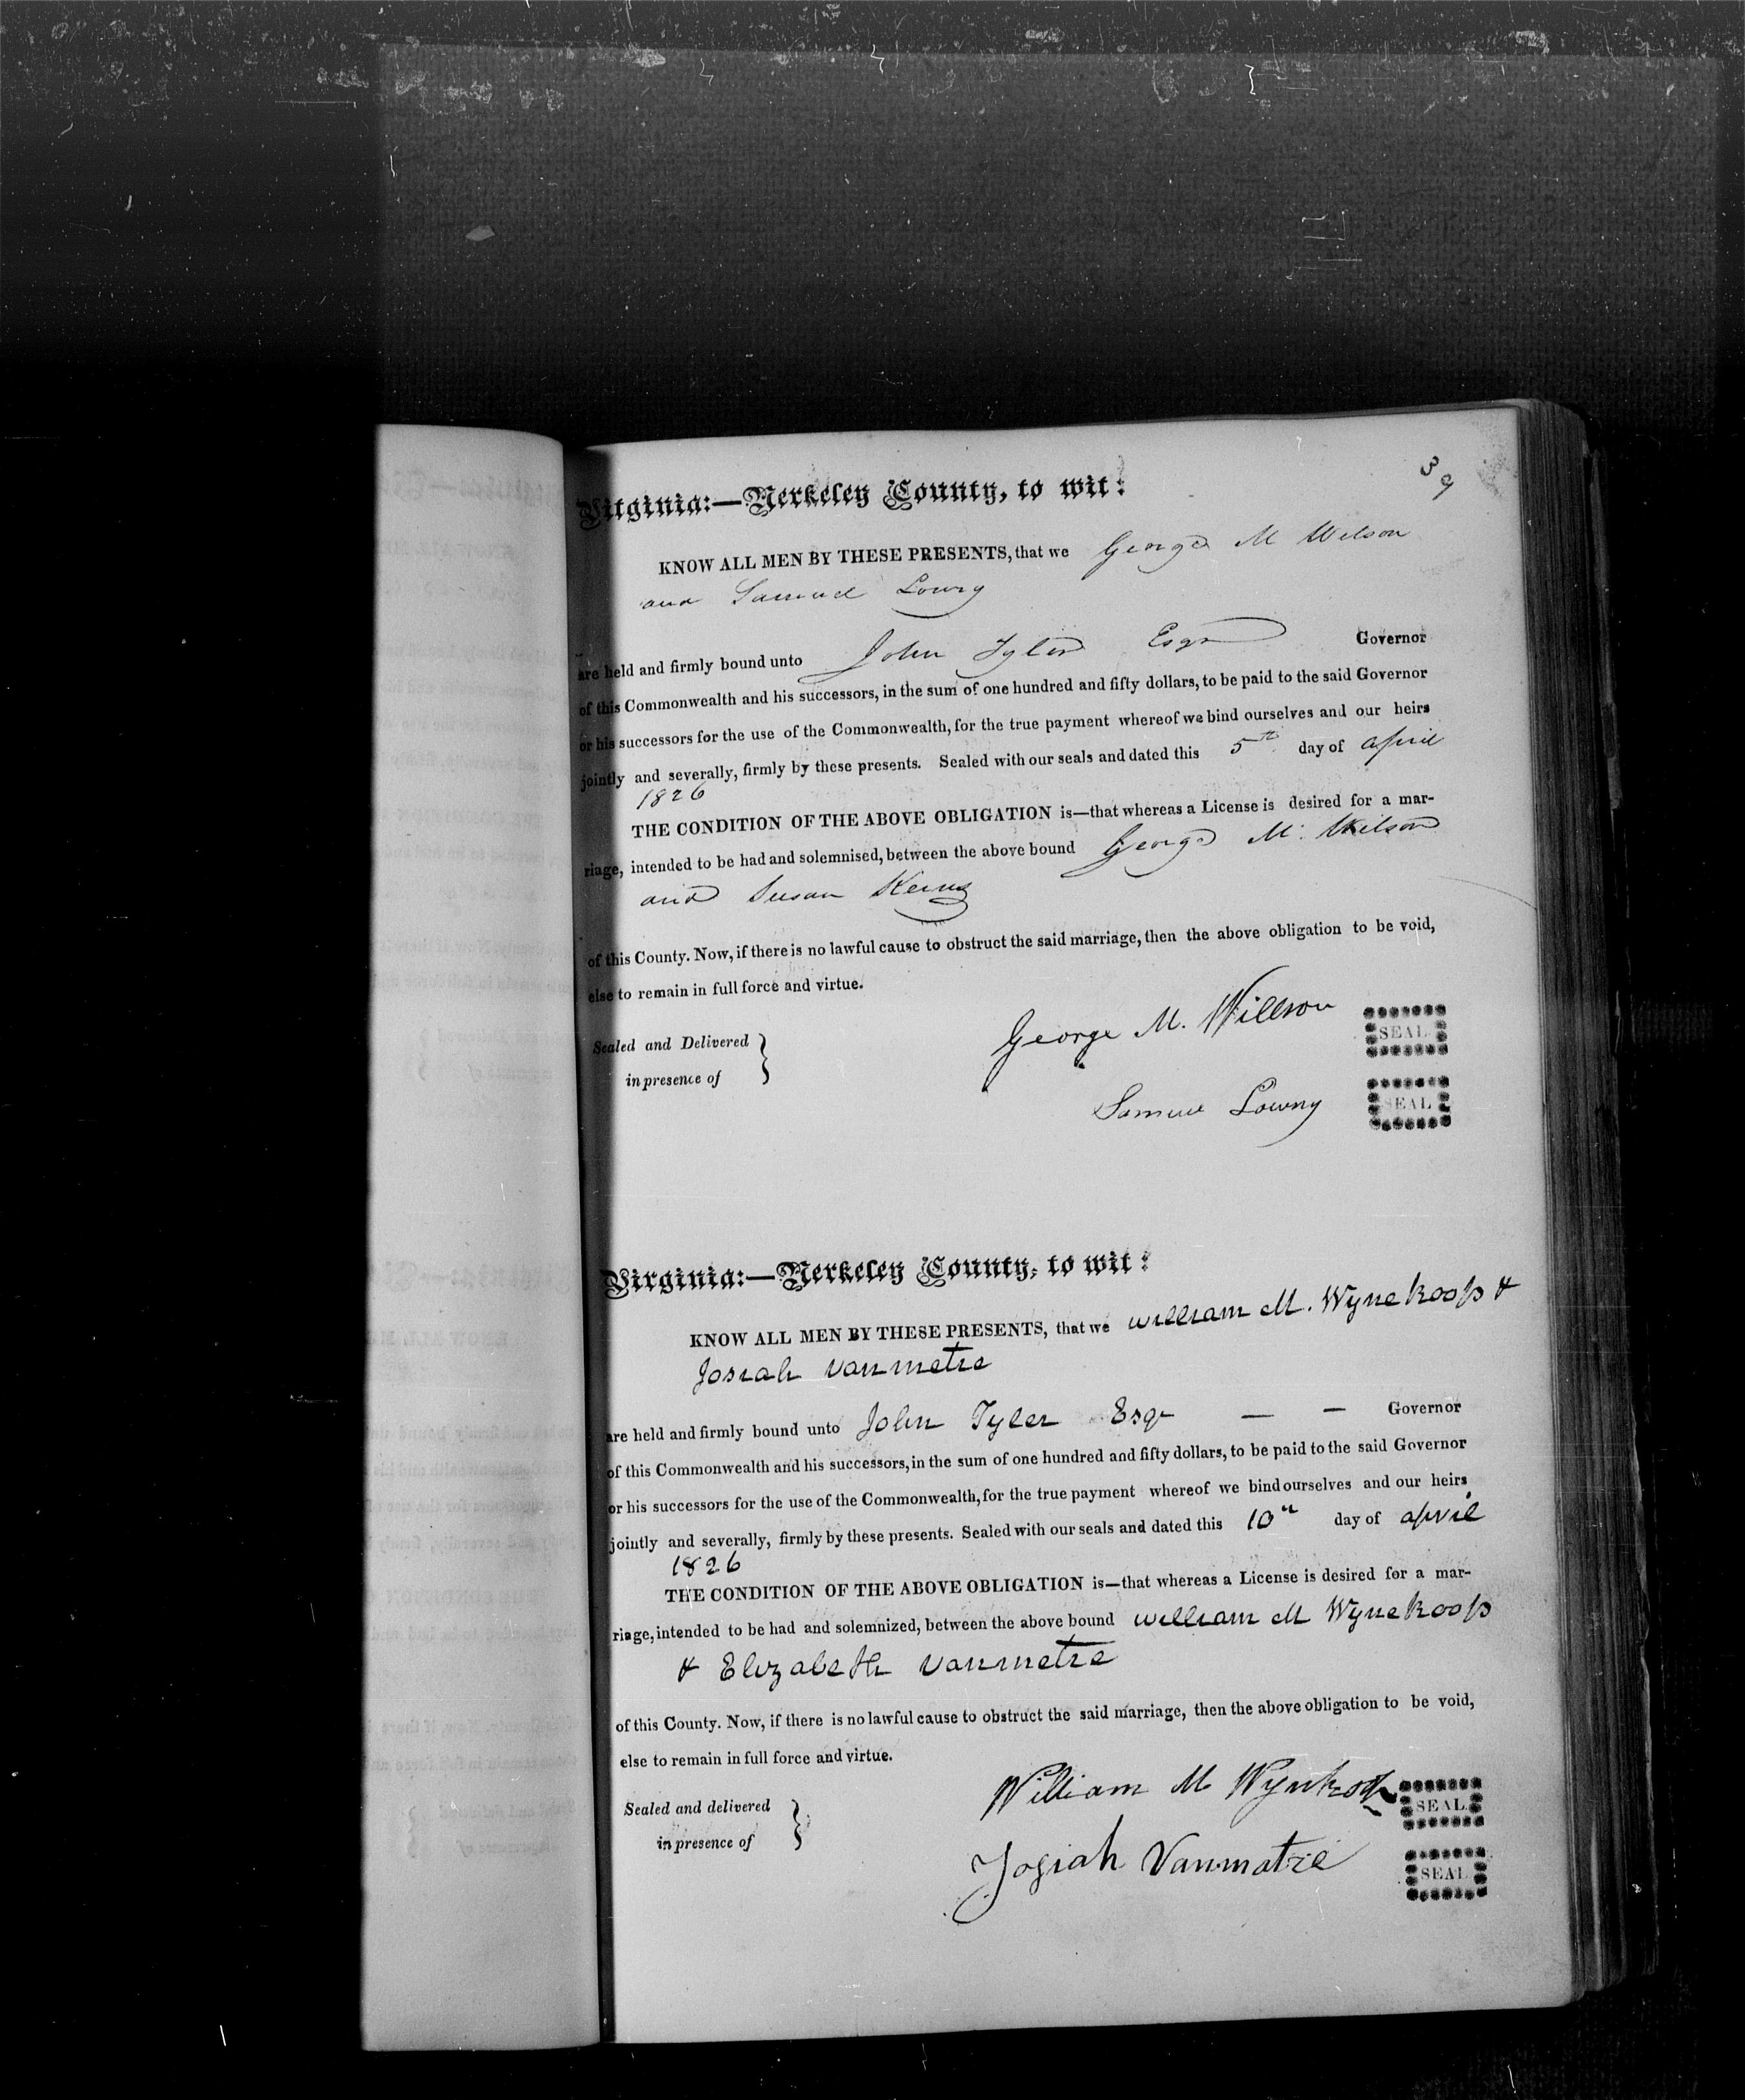 39
Virginia:—Berkeley County, to wit:
KNOW ALL MEN BY THESE PRESENTS, that we George M Wilson
and Samuel Lowry
are held and firmly bound unto John Tyler Esqr Governor
of this Commonwealth and his successors, in the sum of one hundred and fifty dollars, to be paid to the said Governor
or his successors for the use of the Commonwealth, for the true payment whereof we bind ourselves and our heirs
jointly and severally, firmly by these presents. Sealed with our seals and dated this 5th day of april
1826
THE CONDITION OF THE ABOVE OBLIGATION is—that whereas a License is desired for a mar-
riage, intended to be had and solemnised, between the above bound George M. Wilson
and Susan Kerns
of this County. Now, if there is no lawful cause to obstruct the said marriage, then the above obligation to be void,
else to remain in full force and virtue.
George M. Willson SEAL
Sealed and Delivered
in presence of
Samuel Lowry SEAL
Virginia:—Berkeley County, to wit:
KNOW ALL MEN BY THESE PRESENTS, that we william M. Wynekoop &
Josiah vanmetre
are held and firmly bound unto John Tyler Esqr — — Governor
of this Commonwealth and his successors, in the sum of one hundred and fifty dollars, to be paid to the said Governor
or his successors for the use of the Commonwealth, for the true payment whereof we bind ourselves and our heirs
jointly and severally, firmly by these presents. Sealed with our seals and dated this 10th day of april
1826
THE CONDITION OF THE ABOVE OBLIGATION is—that whereas a License is desired for a mar-
riage, intended to be had and solemnized, between the above bound william M Wynekoop
& Elizabeth vanmetre
of this County. Now, if there is no lawful cause to obstruct the said marriage, then the above obligation to be void,
else to remain in full force and virtue.
William M Wynkoop SEAL
Sealed and delivered
in presence of
Josiah Vanmatre SEAL